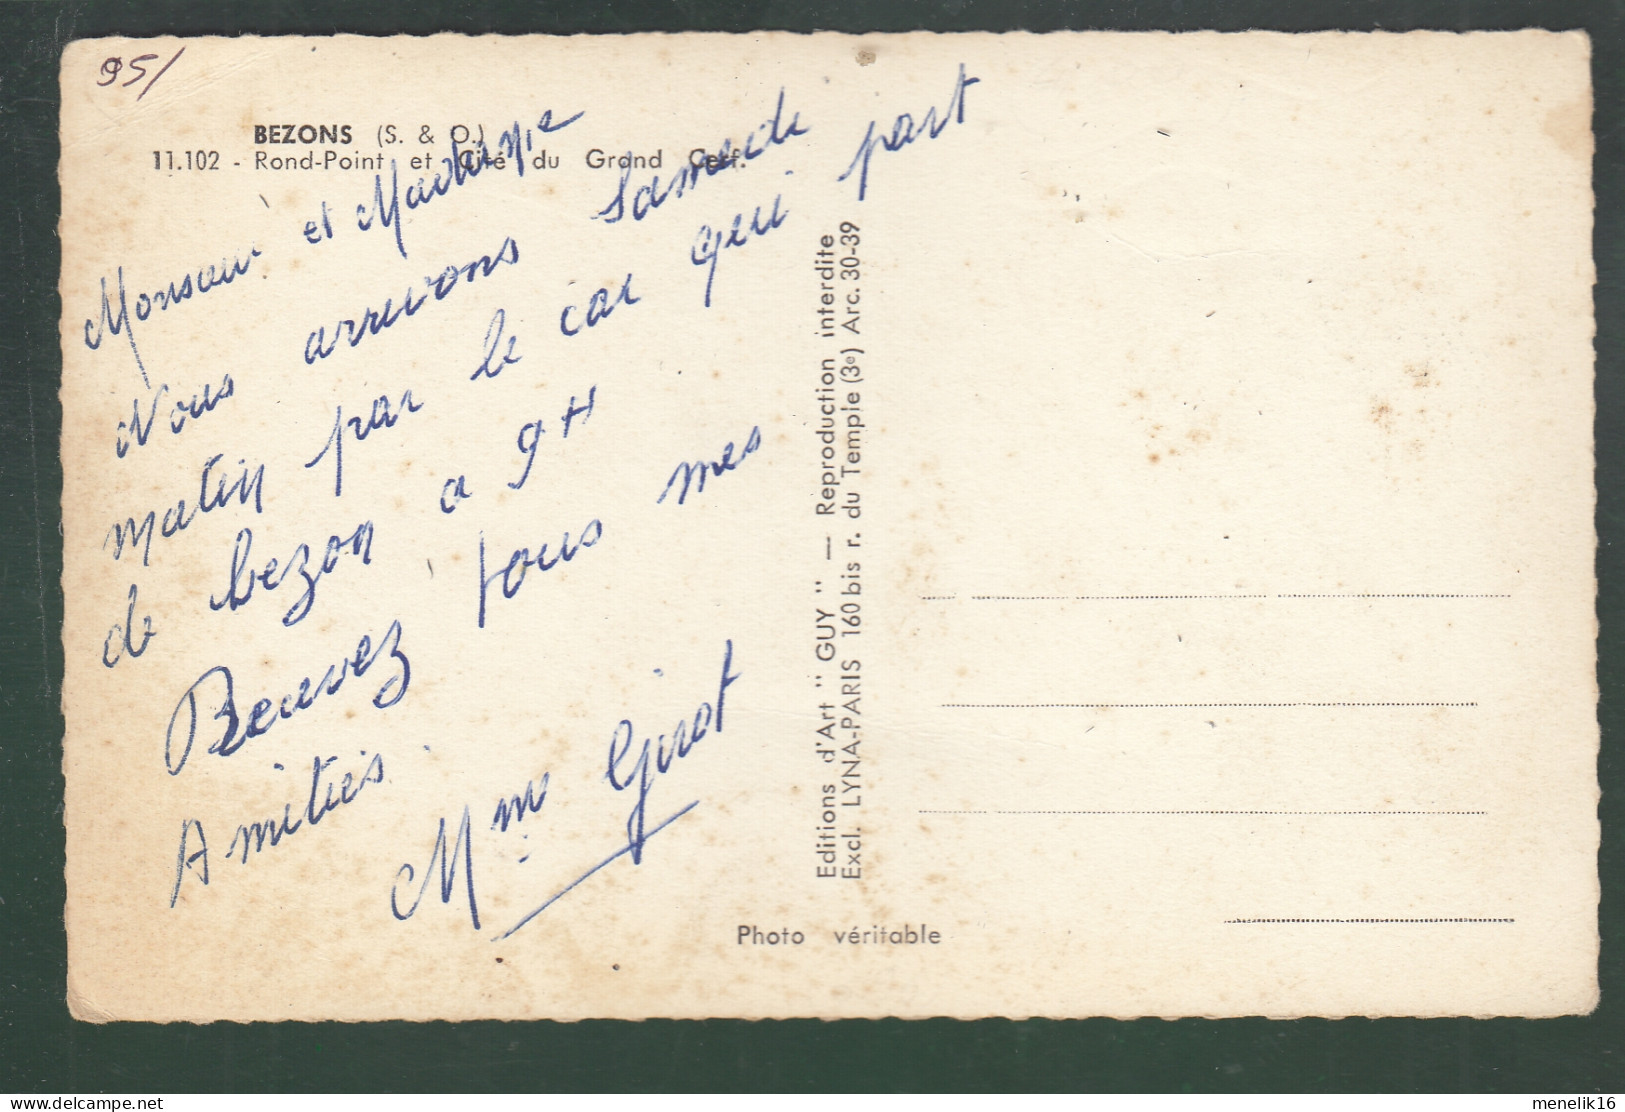 95/
BEZONS (S. & O.)
11.102 - Rond-Point et Cité du Grand Cerf.
Monsieur et Madame
Nous arrivons Samedi
matin par le car qui part
de bezon a 9 H
Recevez tous mes
Amitiés.
Mme Girot
Editions d'Art " GUY " — Reproduction interdite
Excl. LYNA-PARIS 160 bis r. du Temple (3e) Arc. 30-39
Photo véritable
menelik16